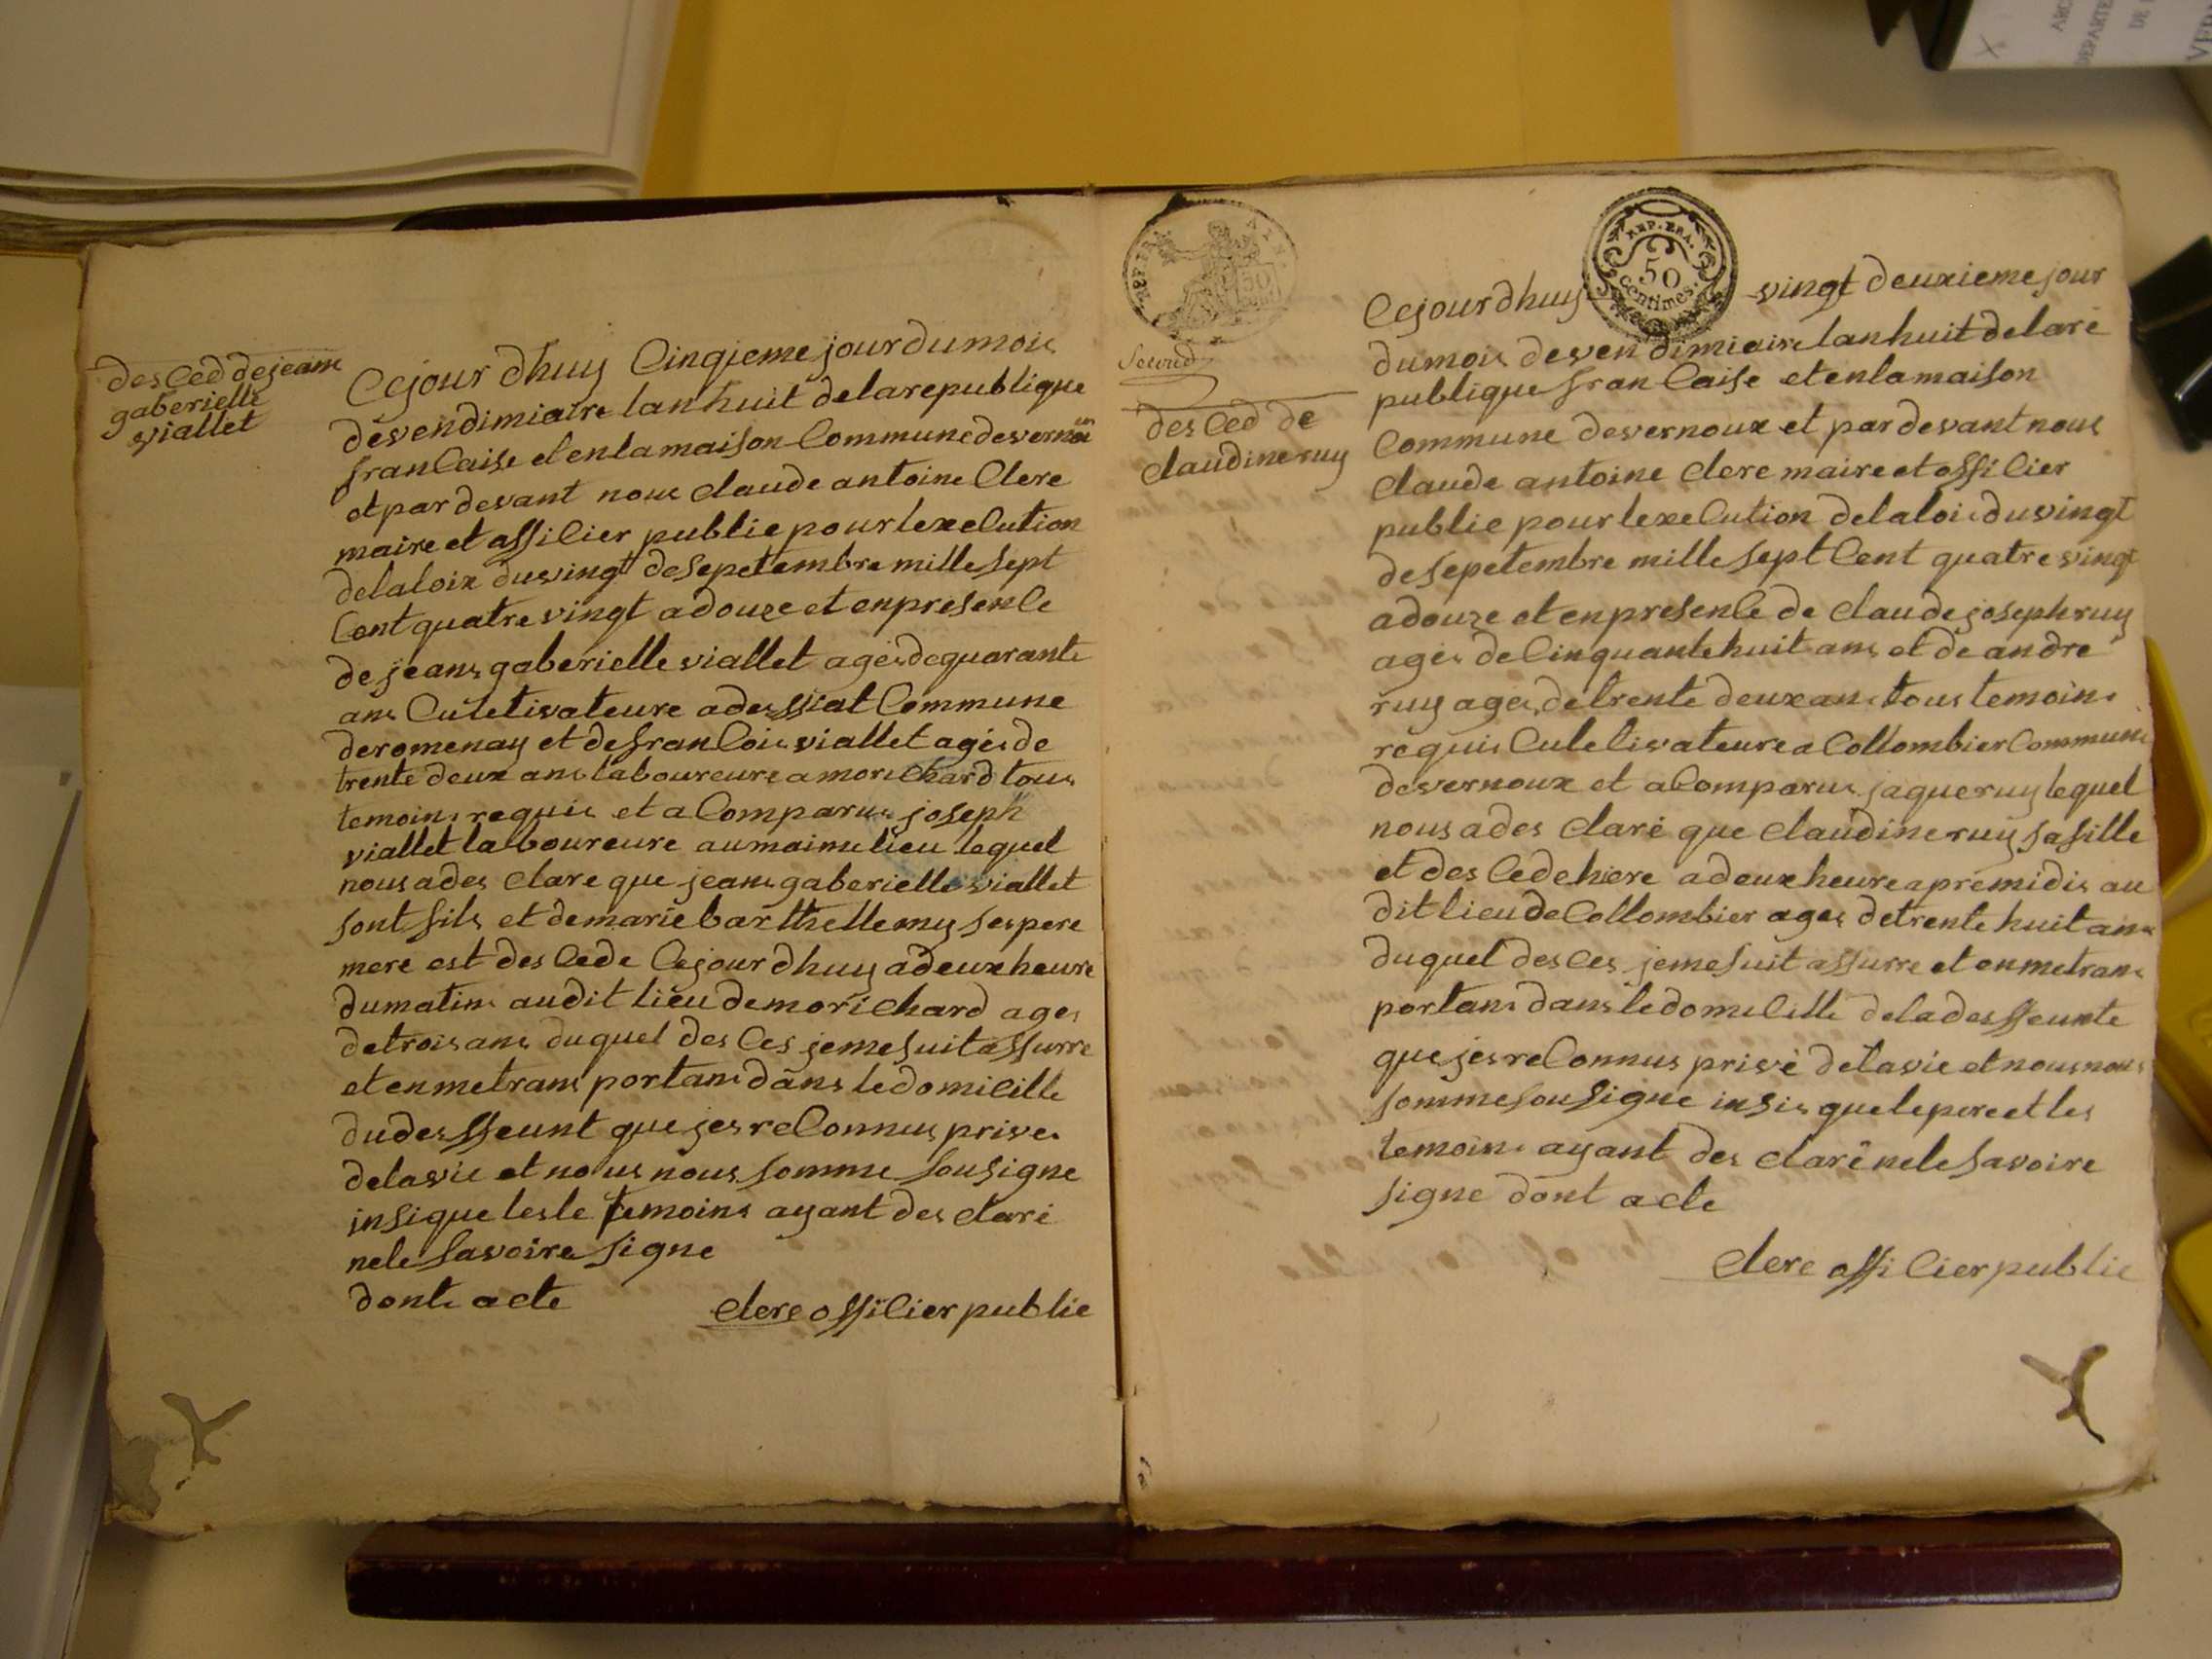 des ced de jean
gaberielle
viallet
Cejour dhuy Cinqieme jour du mois
de vendimiaire lan huit dela republique
francaise et en la maison Commune de vernou
et par devant nous claude antoine Clere
maire et officier public pour lexecution
de la loix du vingt de sepetembre mille sept
Cent quatre vingt a douze et en presence
de jean gaberielle viallet ages de quarante
ans Culetivateure a Commune
de romenay et de francois viallet agés de
trente deux ans laboureure a morichard tous
temoins requis et a Comparus joseph
viallet laboureure au maime lieu lequel
nous a des clare que jean gaberielle viallet
sont fils et de marie barthellemy ses pere
mere est des cede Cejour dhuy a deux heure
du matin audit lieu de morichard ages
de trois ans duquel des ces je me suit assurre
et en me trans portans dans le domicille
du desffeunt que jes reConnus prives
de la vie et nous nous somme sousigne
insi que les le temoins ayant des claré
ne le savoire signe
dont acte
clere officier public
REP. FRA.
50
centimes.
Cejour dhuy vingt deuxieme jour
du mois de vendimiaire lan huit de la ré
publique francaise et en la maison
Commune de vernoux et par devant nous
claude antoine clere maire et officier
public pour lexecution de la loi du vingt
de sepetembre mille sept Cent quatre vingt
a douze et en presence de claude joseph ruy
agés de Cinquante huit ans et de andre
ruy ages de trente deux ans tous temoins
requis Culetivateure a Collombier Commune
de vernoux et a Comparus jaque ruy lequel
nous a des claré que claudine ruy sa fille
et des cede hiere a deux heure apremidis au
dit lieu de Collombier ages de trente huit ans
duquel des ces je me suit assurre et en me trans
portans dans le domicille de la desffeunte
que jes reConnus privé de la vie et nous nous
somme sousigne insis que le pere et les
temoins ayant des claré ne le savoire
signe dont acte
clere officier public
des ced de
claudine ruy